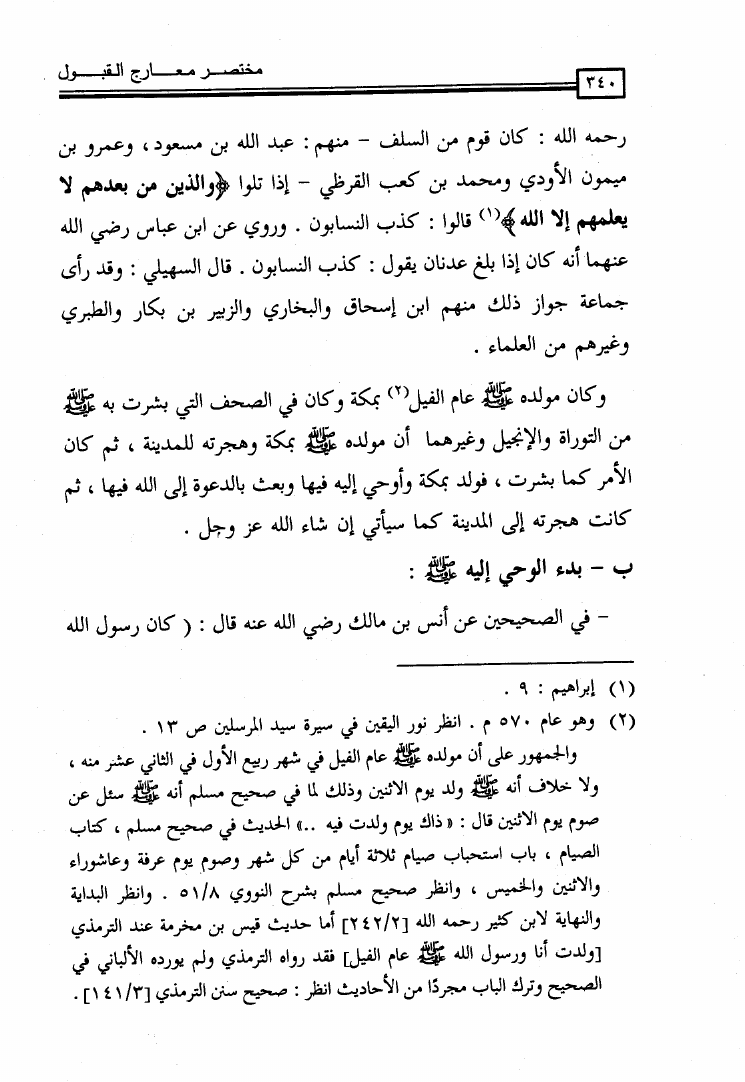 مختصر معارج القبول
٣٤٠
رحمه الله : كان قوم من السلف - منهم : عبد الله بن مسعود ، وعمرو بن
ميمون الأودي ومحمد بن كعب القرظي - إذا تلوا ﴿والذين من بعدهم لا
يعلمهم إلا الله﴾(١) قالوا : كذب النسابون . وروي عن ابن عباس رضي الله
عنهما أنه كان إذا بلغ عدنان يقول : كذب النسابون . قال السهيلي : وقد رأى
جماعة جواز ذلك منهم ابن إسحاق والبخاري والزبير بن بكار والطبري
وغيرهم من العلماء .
وكان مولده ﷺ عام الفيل(٢) بمكة وكان في الصحف التي بشرت به ﷺ
من التوراة والإنجيل وغيرهما أن مولده ﷺ بمكة وهجرته للمدينة ، ثم كان
الأمر كما بشرت ، فولد بمكة وأوحي إليه فيها وبعث بالدعوة إلى الله فيها ، ثم
كانت هجرته إلى المدينة كما سيأتي إن شاء الله عز وجل .
ب - بدء الوحي إليه ﷺ :
- في الصحيحين عن أنس بن مالك رضي الله عنه قال : ( كان رسول الله
(١) إبراهيم : ٩ .
(٢) وهو عام ٥٧٠ م . انظر نور اليقين في سيرة سيد المرسلين ص ١٣ .
والجمهور على أن مولده ﷺ عام الفيل في شهر ربيع الأول في الثاني عشر منه ،
ولا خلاف أنه ﷺ ولد يوم الاثنين وذلك لما في صحيح مسلم أنه ﷺ سئل عن
صوم يوم الاثنين قال : «ذاك يوم ولدت فيه ..» الحديث في صحيح مسلم ، كتاب
الصيام ، باب استحباب صيام ثلاثة أيام من كل شهر وصوم يوم عرفة وعاشوراء
والاثنين والخميس ، وانظر صحيح مسلم بشرح النووي ٥١/٨ . وانظر البداية
والنهاية لابن كثير رحمه الله [٢٤٢/٢] أما حديث قيس بن مخرمة عند الترمذي
[ولدت أنا ورسول الله ﷺ عام الفيل] فقد رواه الترمذي ولم يورده الألباني في
الصحيح وترك الباب مجردًا من الأحاديث انظر : صحيح سنن الترمذي [١٤١/٣] .